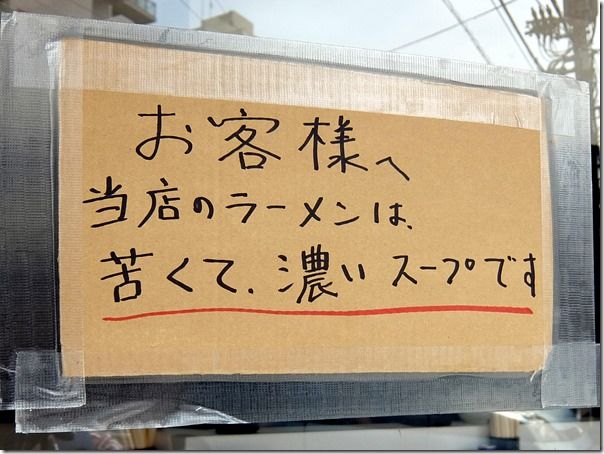 お客様へ
当店のラーメンは、
苦くて、濃いスープです